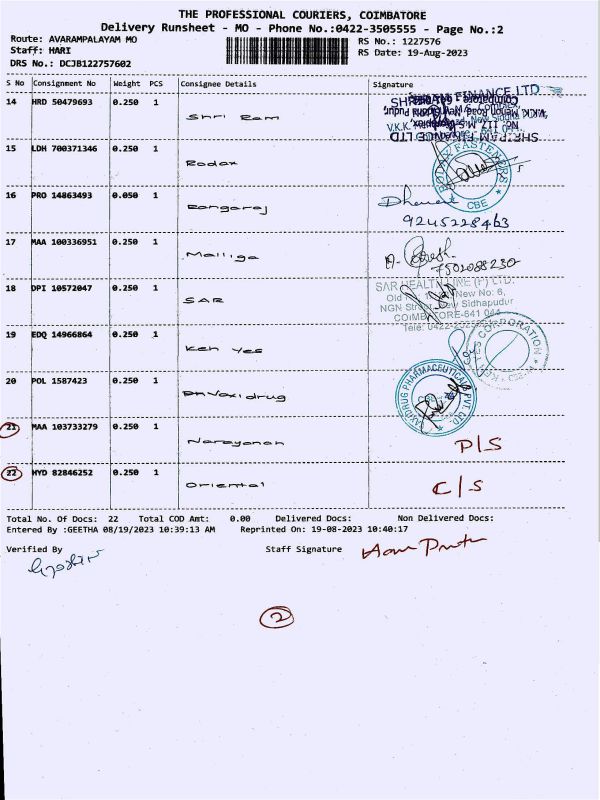 THE PROFESSIONAL COURIERS, COIMBATORE
Delivery Runsheet - MO - Phone No.:0422-3505555 - Page No.:2
Route: AVARAMPALAYAM MO RS No.: 1227576
Staff: HARI RS Date: 19-Aug-2023
DRS No.: DCJB122757602
S No Consignment No Weight PCS Consignee Details Signature
14 HRD 50479693 0.250 1 Shri Ram
15 LDH 700371346 0.250 1 Rodax
RODAX FASTENERS
CBE
16 PRO 14863493 0.050 1 Rangaraj
9245228463
17 MAA 100336951 0.250 1 Malliga
7502088230
18 DPI 10572047 0.250 1 SAR
SAR HEALTH LINE (P) LTD.
New No: 6,
Sidhapudur
COIMBATORE-641 044
19 EDQ 14966864 0.250 1 Ken Yes
CORPORATION
20 POL 1587423 0.250 1
PHARMACEUTICALS PVT. LTD.
21 MAA 103733279 0.250 1 Narayanan P/S
22 HYD 82846252 0.250 1 Oriental C/S
Total No. Of Docs: 22 Total COD Amt: 0.00 Delivered Docs: Non Delivered Docs :
Entered By :GEETHA 08/19/2023 10:39:13 AM Reprinted On: 19-08-2023 10:40:17
Verified By Staff Signature
2